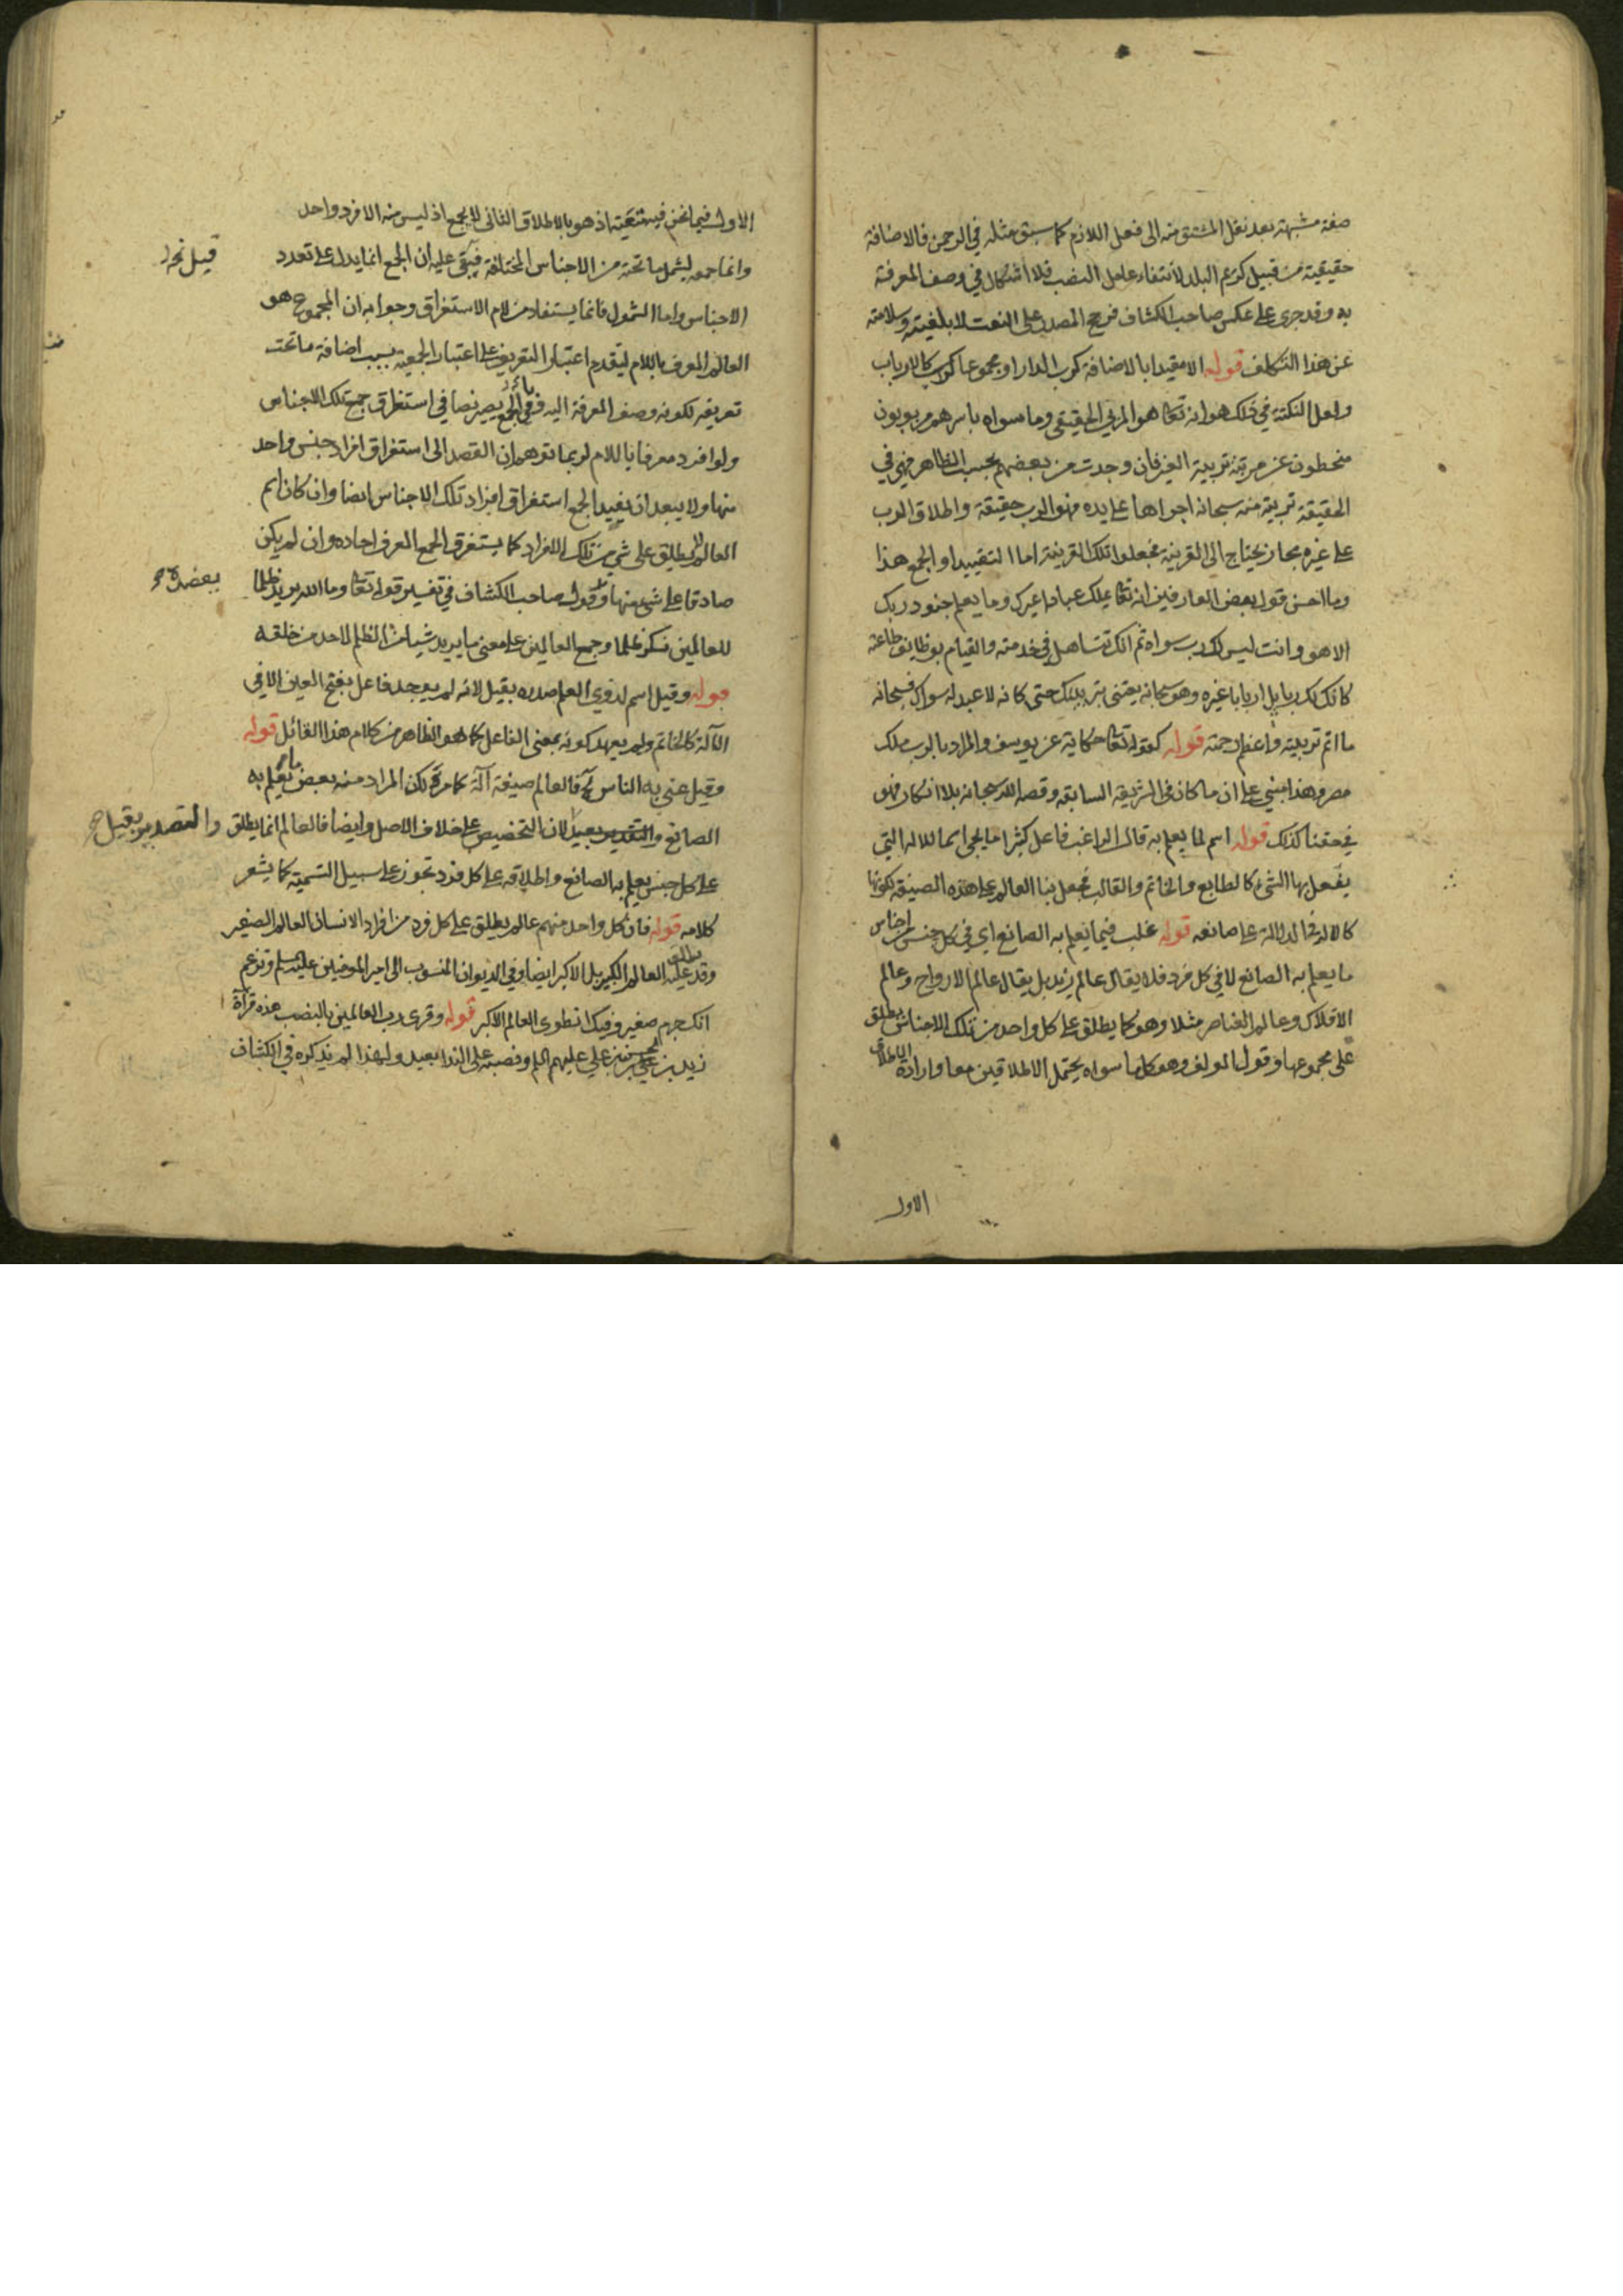 صفة مشبهة بعد نقل المشتق منه الى فعل اللازم كما سبق مثله في الرحمن فالاضافة
حقيقية من قبيل كريم البلد لانتفاء عامل النصب فلا اشكال في وصف المعرفة
به وقد جرى على عكس صاحب الكشاف فرجح المصدر على النعت لابلغيته وسلامته
عن هذا التكلف قوله الا مقيدا بالاضافة كرب الدار او مجموعا كالارباب
ولعل النكتة في ذلك هو انه تعا هو المربي الحقيقي وما سواه باسرهم مربوبون
منحطون عن مرتبة تربية الغير فان وجدت من بعضهم بحسب الظاهر فهي في
الحقيقة تربية منه سبحانه اجراها على يده فهو الرب حقيقة واطلاق الرب
على غيره مجاز يحتاج الى القرينة فجعلوا تلك القرينة اما التقييد او الجمع هذا
وما احسن قول بعض العارفين انه تعا يملك عبادا غيرك وما يعلم جنود ربك
الا هو وانت ليس لك رب سواه ثم انك تتساهل في خدمته والقيام بوظايف طاعته
كان لك ربا بل اربابا غيره وهو سبحانه يعتني بتربيتك حتى كانه لا عبد له سواك فسبحانه
ما اتم تربيته واعظم رحمته قوله كقوله تعا حكاية عن يوسف والمراد بالرب ملك
مصر وهذا مبني على ان ما كان في الشريعة السابقة وقصه الله سبحانه بلا انكار فهو
في حقنا كذلك قوله اسم لما يعلم به قال الراغب فاعل كثيرا ما يجى اسما للالة التي
يفعل بها الشئ كالطابع والخاتم والقالب فجعل بنا العالم على هذه الصيغة لكونها
كالالة في الدلالة على صانعه قوله غلب فيما يعلم به الصانع اي في كل جنس من اجناس
ما يعلم به الصانع لا في كل فرد فلا يقال عالم زيد بل يقال عالم الارواح وعالم
الافلاك وعالم العناصر مثلا وهو كما يطلق على كل واحد من تلك الاجناس يطلق
على مجموعها وقول المولف وهو كل ما سواه يحتمل الاطلاقين معا وارادة الاطلاق
الاول
الاول فيما نحن فيه متعينة اذ هو بالاطلاق الثاني لا يجمع اذ ليس منه الا فرد واحد
وانما جمعه ليشمل ما تحته من الاجناس المختلفة فبقي عليه ان الجمع انما يدل على تعدد
الاجناس واما الشمول فانما يستفاد من لام الاستغراق وجوابه ان المجموع هو
العالم المعرف باللام لتقدم اعتبار التعريف على اعتبار الجمعية بسبب اضافة ما تحت
تعريفه لكونه وصف المعرفة اليه ففي الجمع يصير نصا في استغراق جميع تلك الاجناس
ولو افرد معرفا باللام لربما توهم ان القصد الى استغراق افراد جنس واحد
منها ولا يبعد ان يفيد الجمع استغراق افراد تلك الاجناس ايضا وان كان اسم
العالم لا يطلق على شي من تلك الافراد كما يستغرق الجمع المعرف احاده وان لم يكن
صادقا على شئ منها وقول صاحب الكشاف في تفسير قوله تعا وما الله يريد ظلما
يعضده
للعالمين نكر ظلما وجمع العالمين على معنى ما يريد شيا من الظلم لاحد من خلقه
قوله وقيل اسم لذوي العلم صدره بقيل لانه لم يوجد فاعل بفتح العين الا في
الآلة كالخاتم ولم يعهد كونه بمعنى الفاعل كما هو الظاهر من كلام هذا القائل قوله
وقيل عني به الناس فالعالم صيغة آلة كما مر لكن المراد منه بعض ما يعلم به
الصانع والتقدير بعيد لان التخصيص على خلاف الاصل وايضا فالعالم انما يطلق
على كل جنس يعلم به الصانع واطلاقه على كل فرد تجوز على سبيل التسمية كما يشعر
كلامه قوله فان كل واحد منهم عالم يطلق على كل فرد من افراد الانسان العالم الصغير
وقد يطلق عليه العالم الكبير بل الاكبر ايضا وفي الديوان المنسوب الى امير المومنين عليه السلم وتزعم
انك جرم صغير وفيك انطوى العالم الاكبر قوله وقرى رب العالمين بالنصب هذه قرآة
زيد بن علي بن الحسين بن علي عليهم السلم ونصبه على الندا بعيد ولهذا لم يذكره في الكشاف